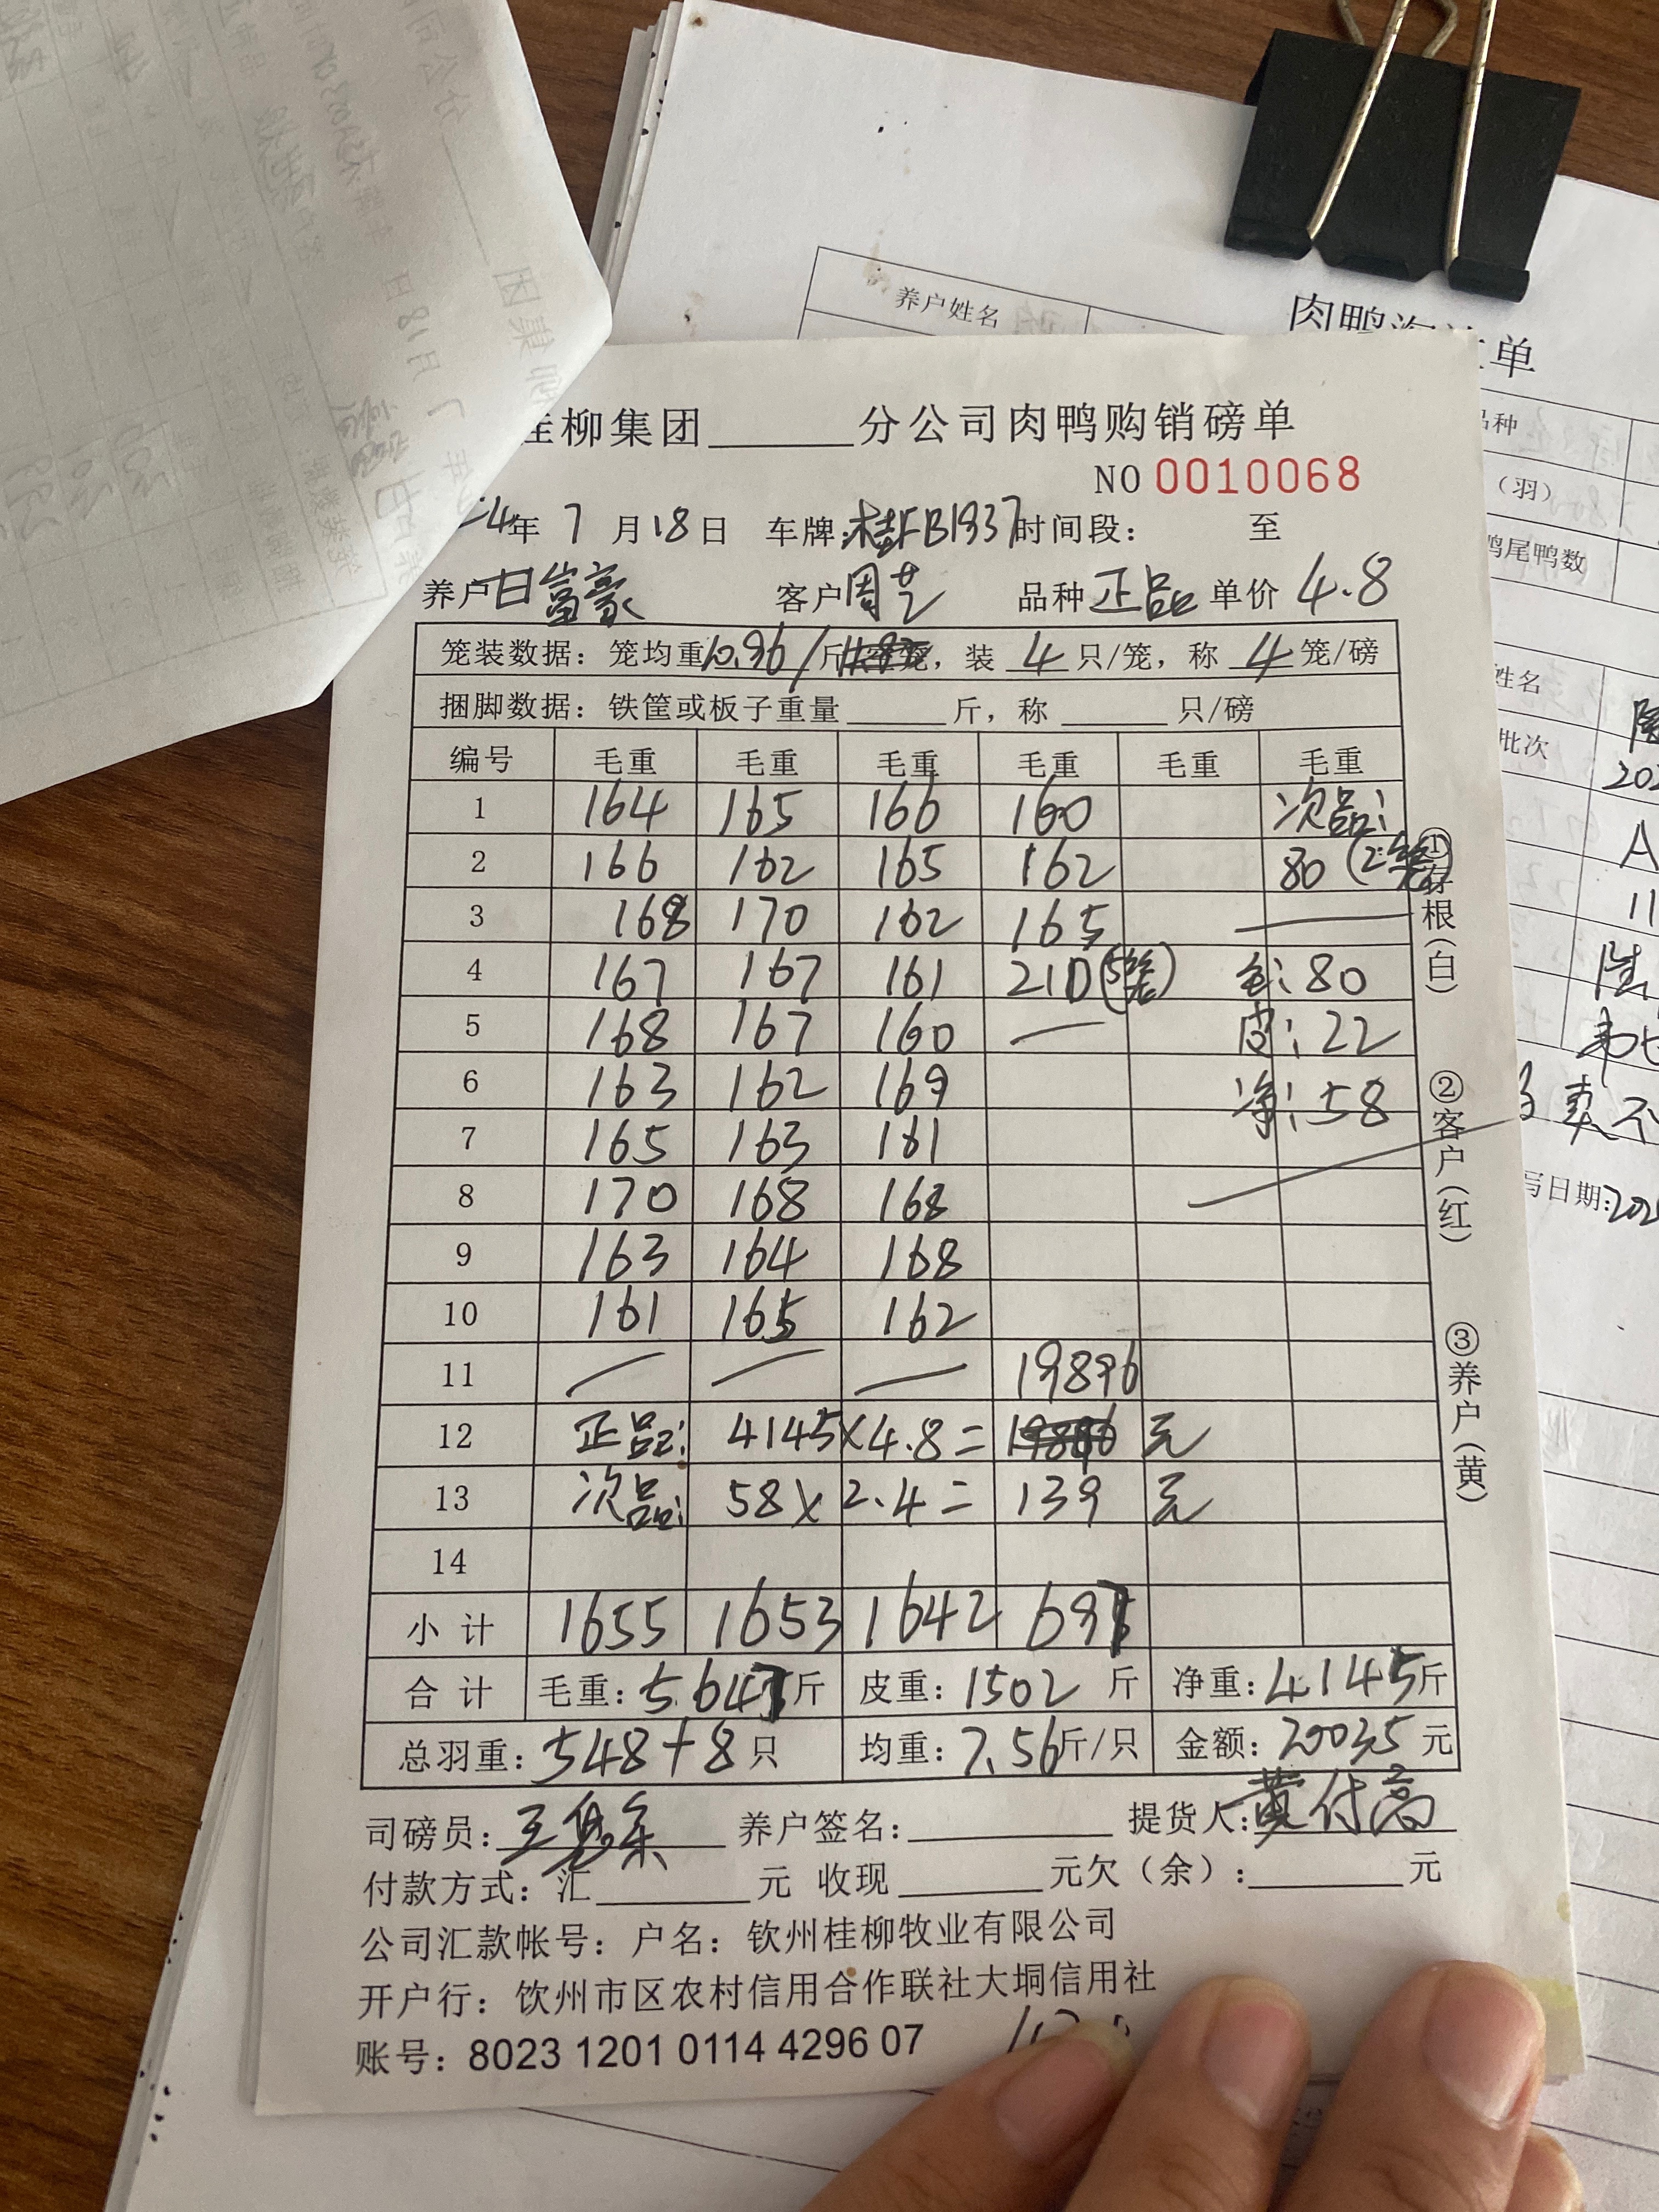 养户姓名
肉鸭
单
品种
(羽)
鸭尾鸭数
姓名
批次
写日期:202
桂柳集团______分公司肉鸭购销磅单
NO 0010068
4年 7 月 18 日 车牌:桂FB1937 时间段: 至
养户 甘富豪 客户 周艺 品种 正品 单价 4.8
笼装数据: 笼均重 10.96/斤, 装 4 只/笼, 称 4 笼/磅
捆脚数据: 铁筐或板子重量______斤, 称______只/磅
编号 毛重 毛重 毛重 毛重 毛重 毛重
1 164 165 166 160 次品:
2 166 162 165 162 80 (2笼)
3 168 170 162 165 —
4 167 167 161 210 (5笼) 毛: 80
5 168 167 160 — 皮: 22
6 163 162 169 净: 58
7 165 163 161
8 170 168 168
9 163 164 168
10 161 165 162
11 — — — 19896
12 正品: 4145×4.8= 元
13 次品: 58×2.4= 139 元
14
小计 1655 1653 1642 697
合计 毛重: 5647斤 皮重: 1502 斤 净重: 4145斤
总羽重: 548+8 只 均重: 7.56斤/只 金额: 20035 元
①存根(白)
②客户(红)
③养户(黄)
司磅员: 养户签名:______ 提货人: 黄付高
付款方式: 汇______元 收现______元欠(余):______元
公司汇款帐号: 户名: 钦州桂柳牧业有限公司
开户行: 钦州市区农村信用合作联社大垌信用社
账号: 8023 1201 0114 4296 07